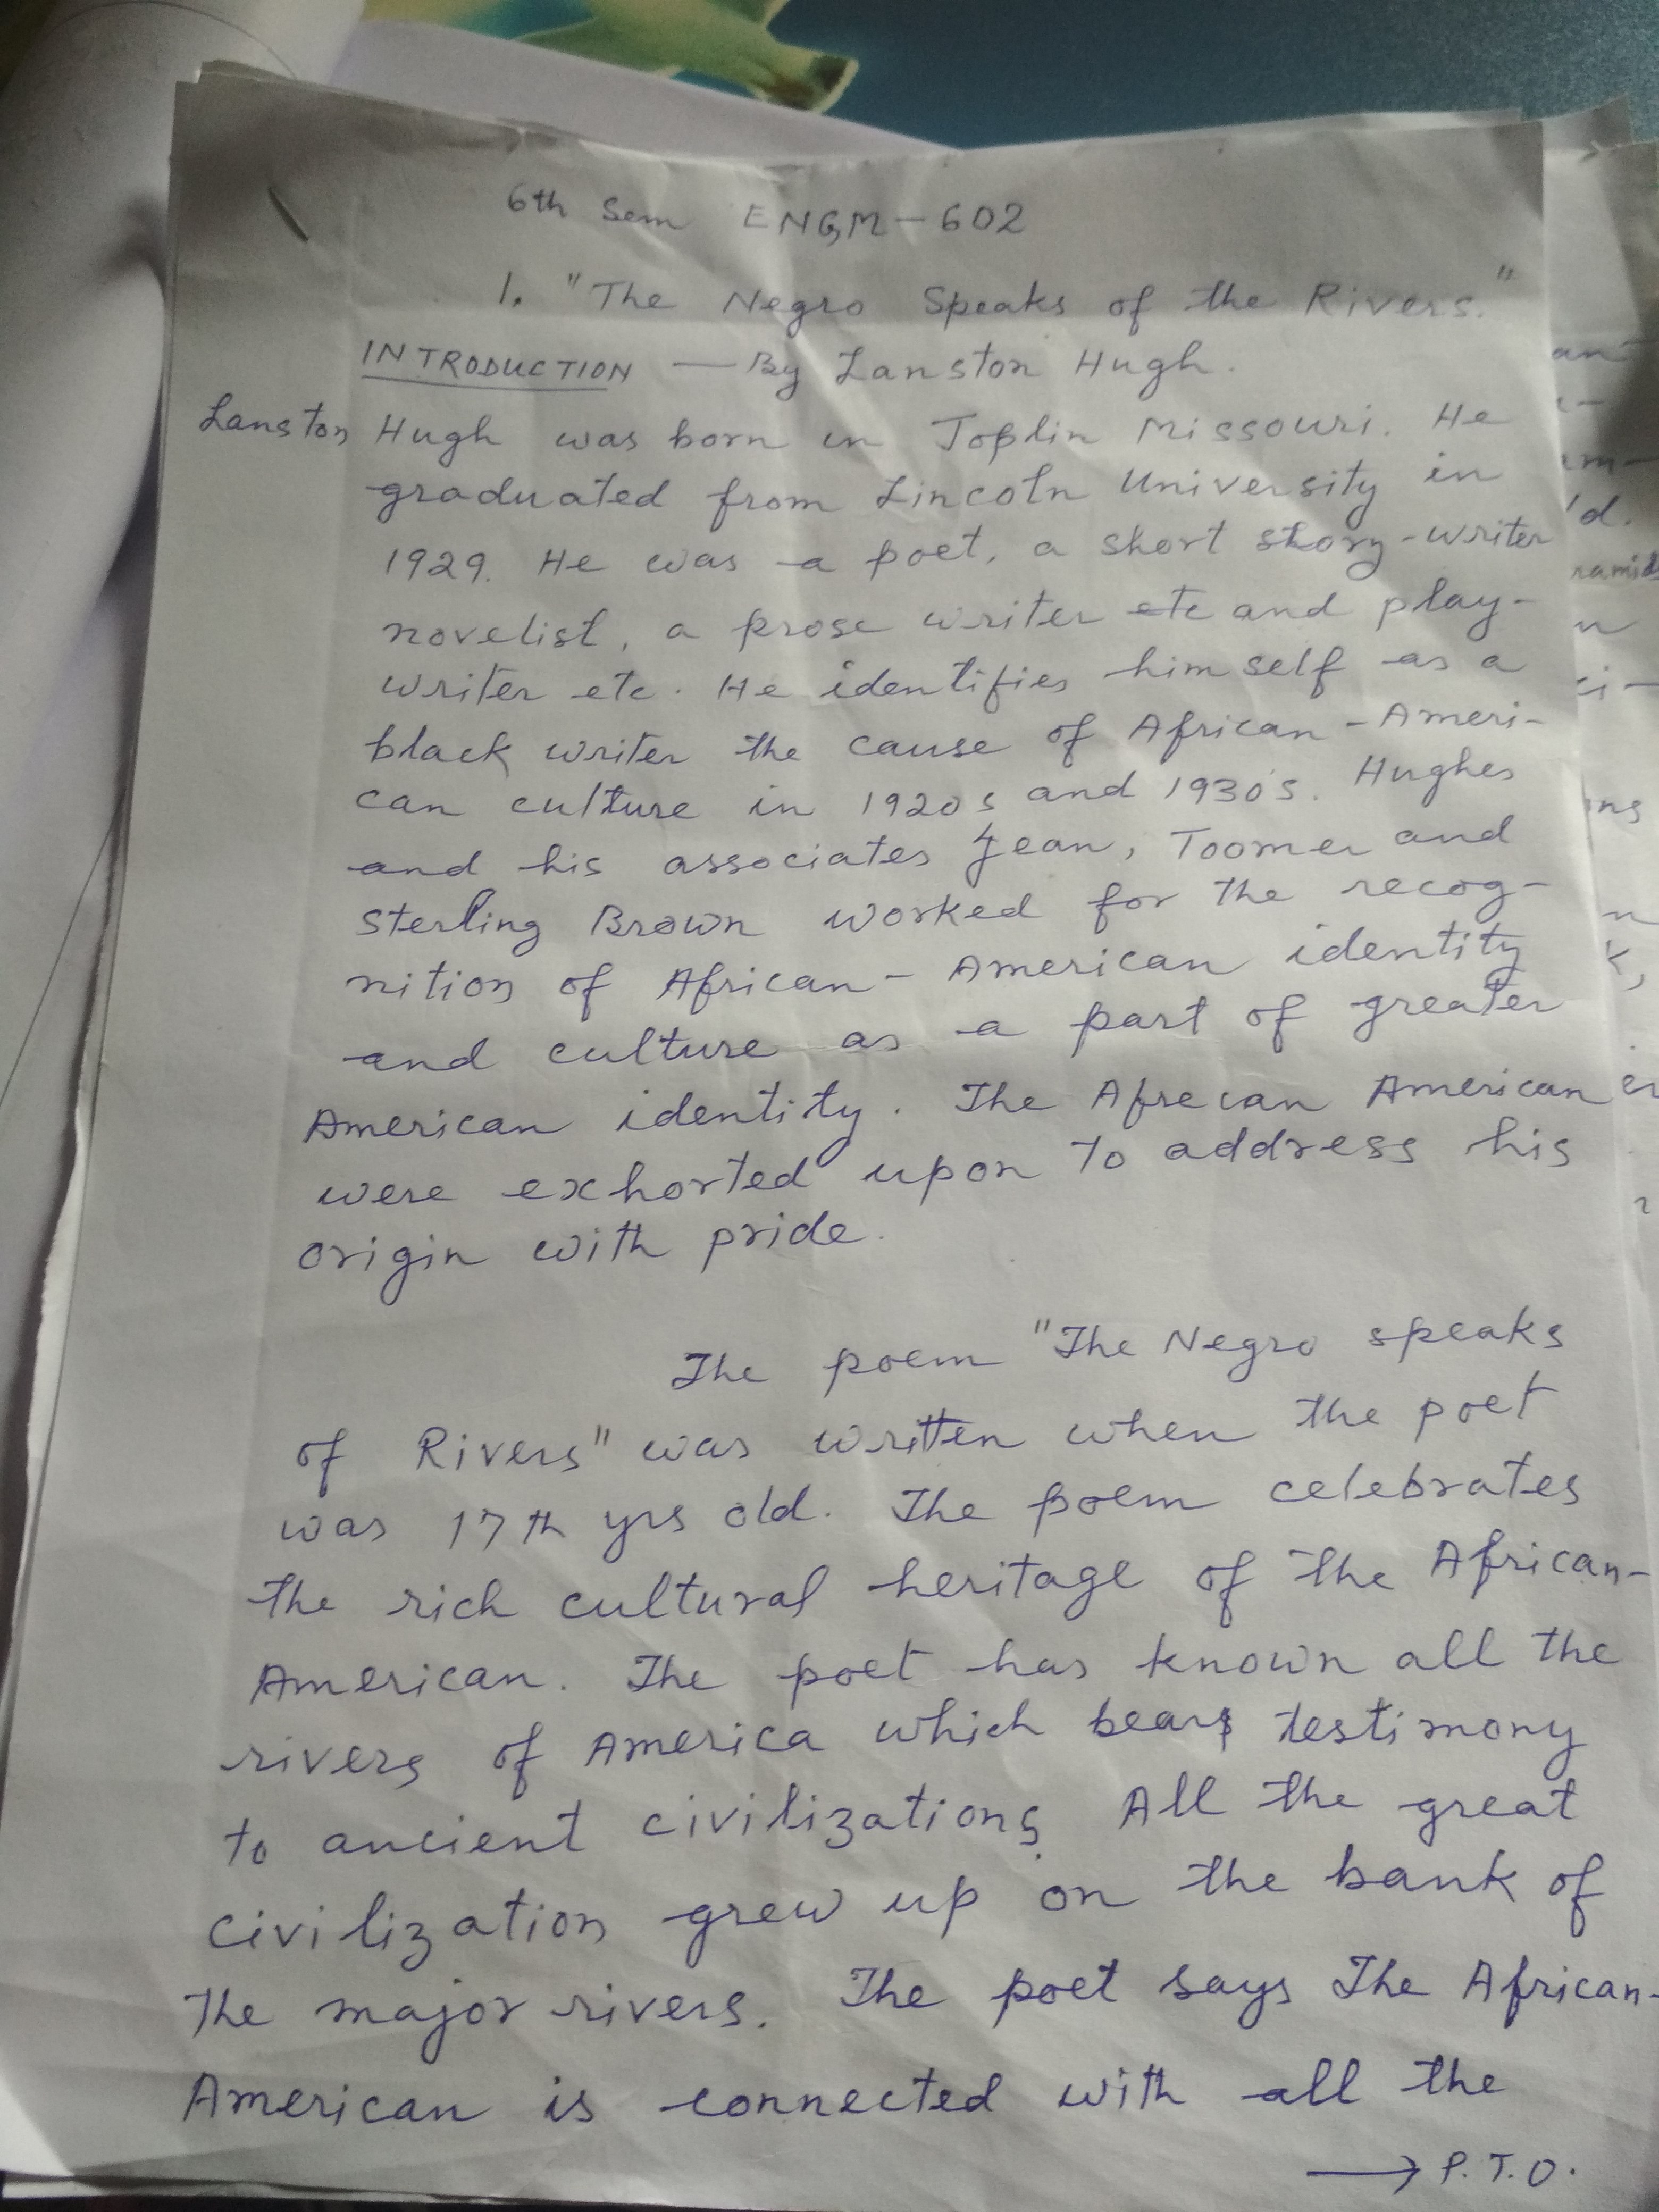 6th Sem ENGM-602
1. "The Negro Speaks of the Rivers."
INTRODUCTION — By Lanston Hugh.
Lanston Hugh was born in Joplin Missouri. He
graduated from Lincoln University in
1929. He was a poet, a short story-writer
novelist, a prose writer etc and play-
writer etc. He identifies himself as a
black writer the cause of African-Ameri-
can culture in 1920s and 1930's. Hughes
and his associates Jean, Toomer and
Sterling Brown worked for the recog-
nition of African-American identity
and culture as a part of greater
American identity. The Afrecan American
were exhorted upon to address his
origin with pride.
The poem "The Negro speaks
of Rivers" was written when the poet
was 17th yrs old. The poem celebrates
the rich cultural heritage of the African-
American. The poet has known all the
rivers of America which bears testimony
to ancient civilizations. All the great
civilization grew up on the bank of
the major rivers. The poet says The African-
American is connected with all the
→ P.T.O.